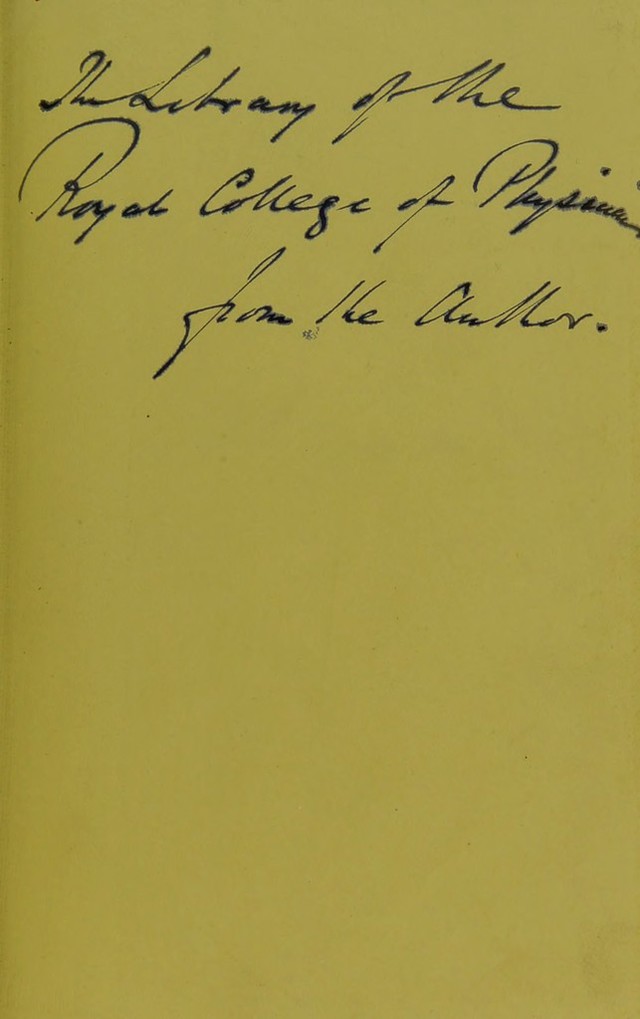 The Library of the
Royal College of Physicians
from the Author.